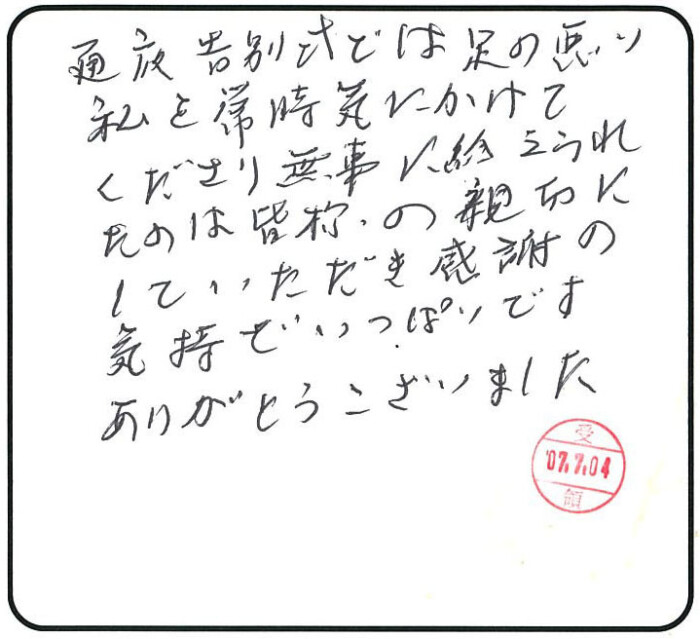 通夜告別式では足の悪い
私を常時気にかけて
くださり無事に終えられ
たのは皆様の親切に
していただき感謝の
気持でいっぱいです
ありがとうございました
受
'07.7.04
領